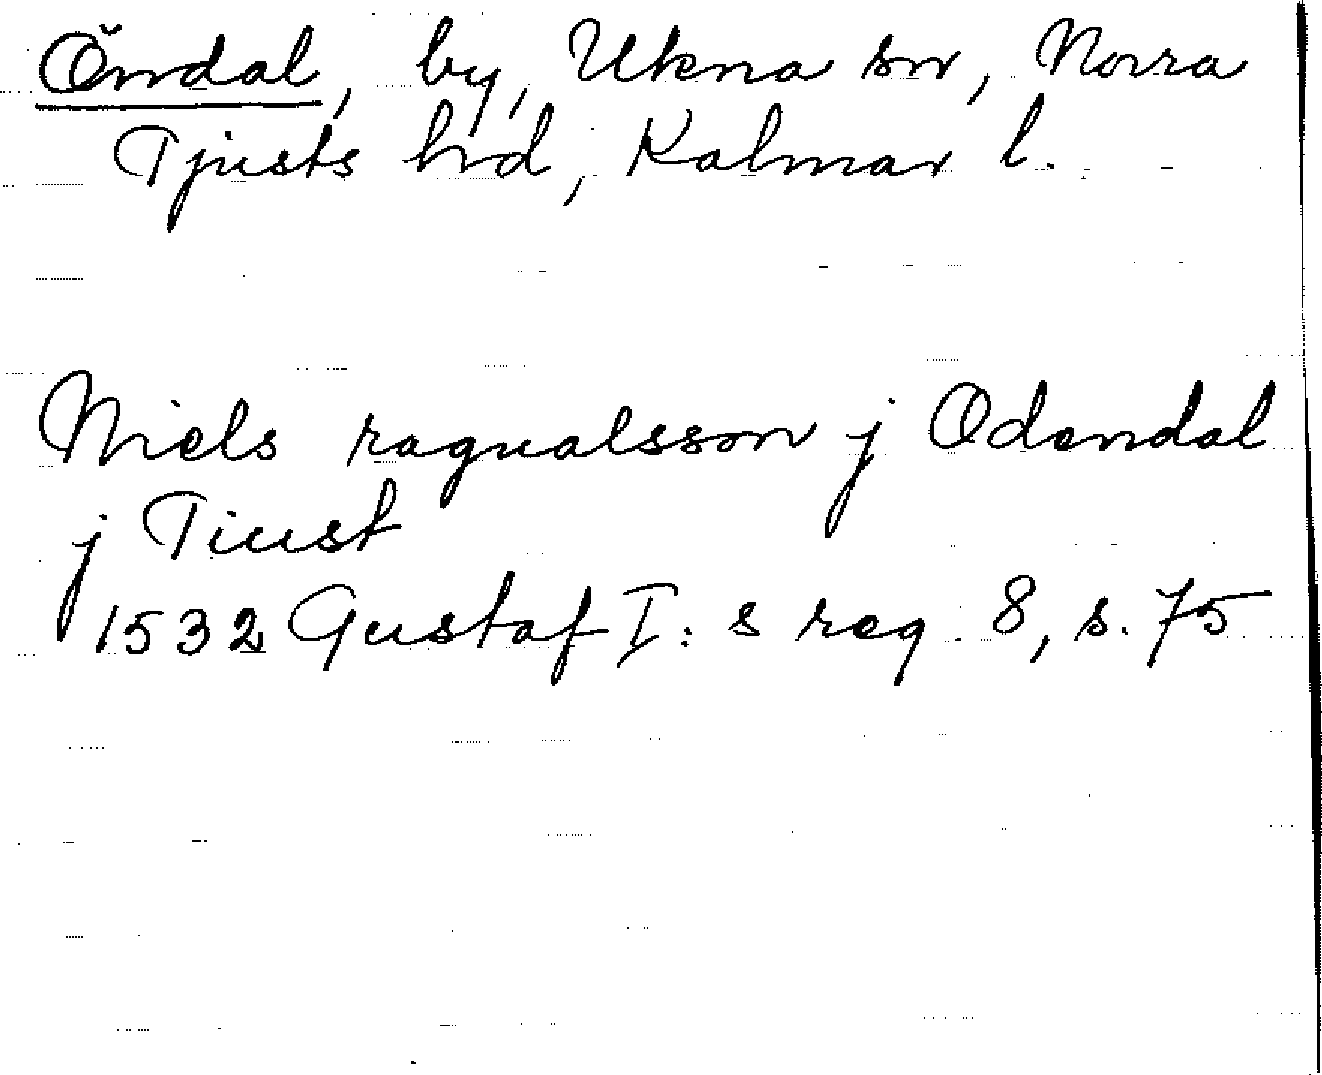 Öndal, by, Ukna sn, Norra
Tjusts hrd, Kalmar l.
Niels ragualsson j Odendal
j Tiust
1532 Gustaf I:s reg. 8, s. 75